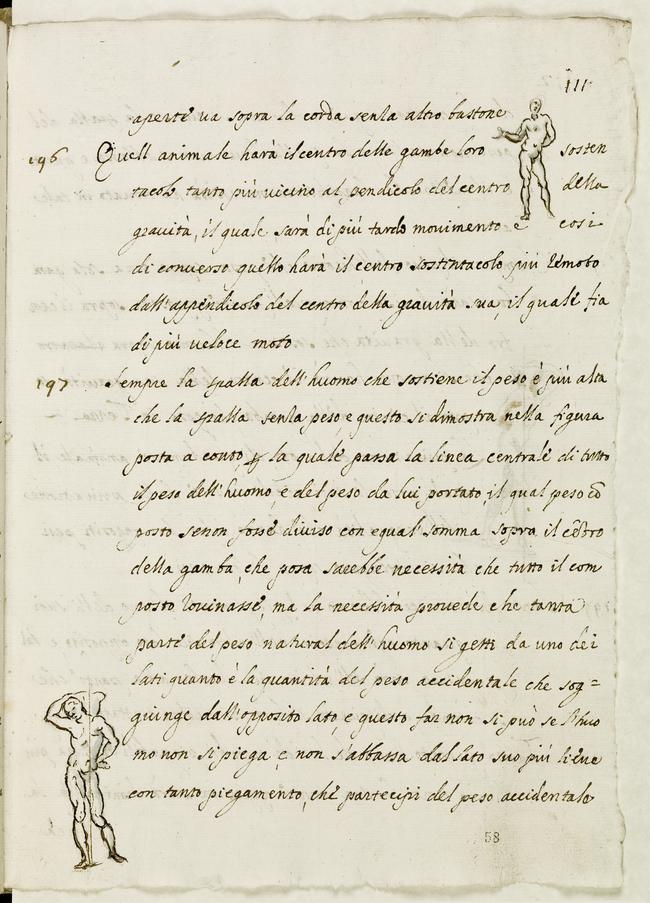 111
aperte ua sopra la corda senza altro bastone
196 Quell animale harà il centro delle gambe loro sosten
tacolo tanto più uicino al pendicolo del centro della
grauità, il quale sarà di più tardo mouimento e cosi
di conuerso quello harà il centro sostentacolo più remoto
dall'appendicolo del centro della grauità sua, il quale fia
di più ueloce moto
197 Sempre la spalla dell'huomo che sostiene il peso è più alta
che la spalla senza peso, e questo si dimostra nella figura
posta a conto, la quale passa la linea centrale di tutto
il peso dell'huomo, e del peso da lui portato, il qual peso cō
posto se non fosse diuiso con equal somma sopra il cētro
della gamba, che posa sarebbe necessità che tutto il com
posto rouinasse, ma la necessità prouede che tanta
parte del peso natural dell'huomo si getti da uno dei
lati quanto è la quantità del peso accidentale che sog=
giunge dall'opposito lato, e questo far non si può se l'huo
mo non si piega e non s'abbassa dal lato suo più lieue
con tanto piegamento, che partecipi del peso accidentale
58